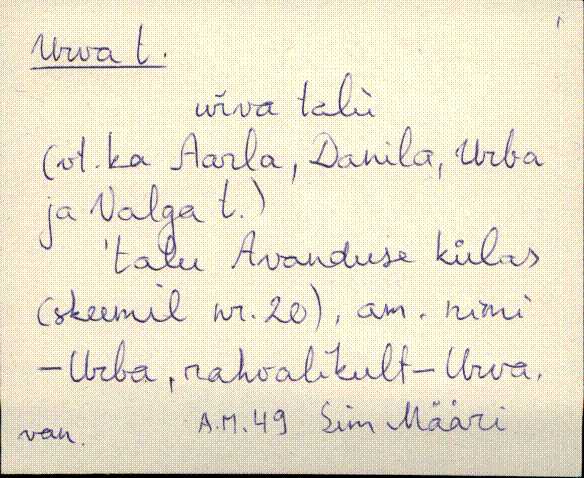 Urva t.
urva talu
(vt. ka Aarla, Danila, Urba
ja Valga t.)
'talu Avanduse külas
(skeemil nr. 20), am. nimi
– Urba, rahvalikult – Urva.
van. A.M. 49 Sim Määri